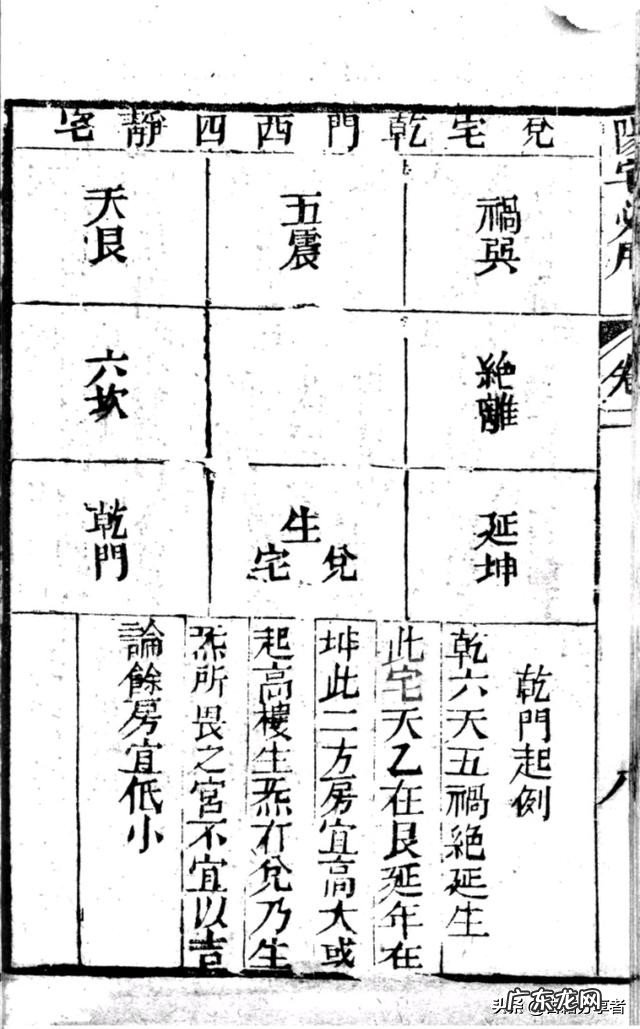 陽宅必用
卷
八
兌宅乾門西四靜宅
禍巽
五震
天艮
絶離
六坎
延坤
生
兌宅
乾門
乾門起例
乾六天五禍絶延生
此宅天乙在艮延年在
坤此二方房宜高大或
起高樓生炁在兌乃生
炁所畏之宮不宜以吉
論餘房宜低小
广东龙网